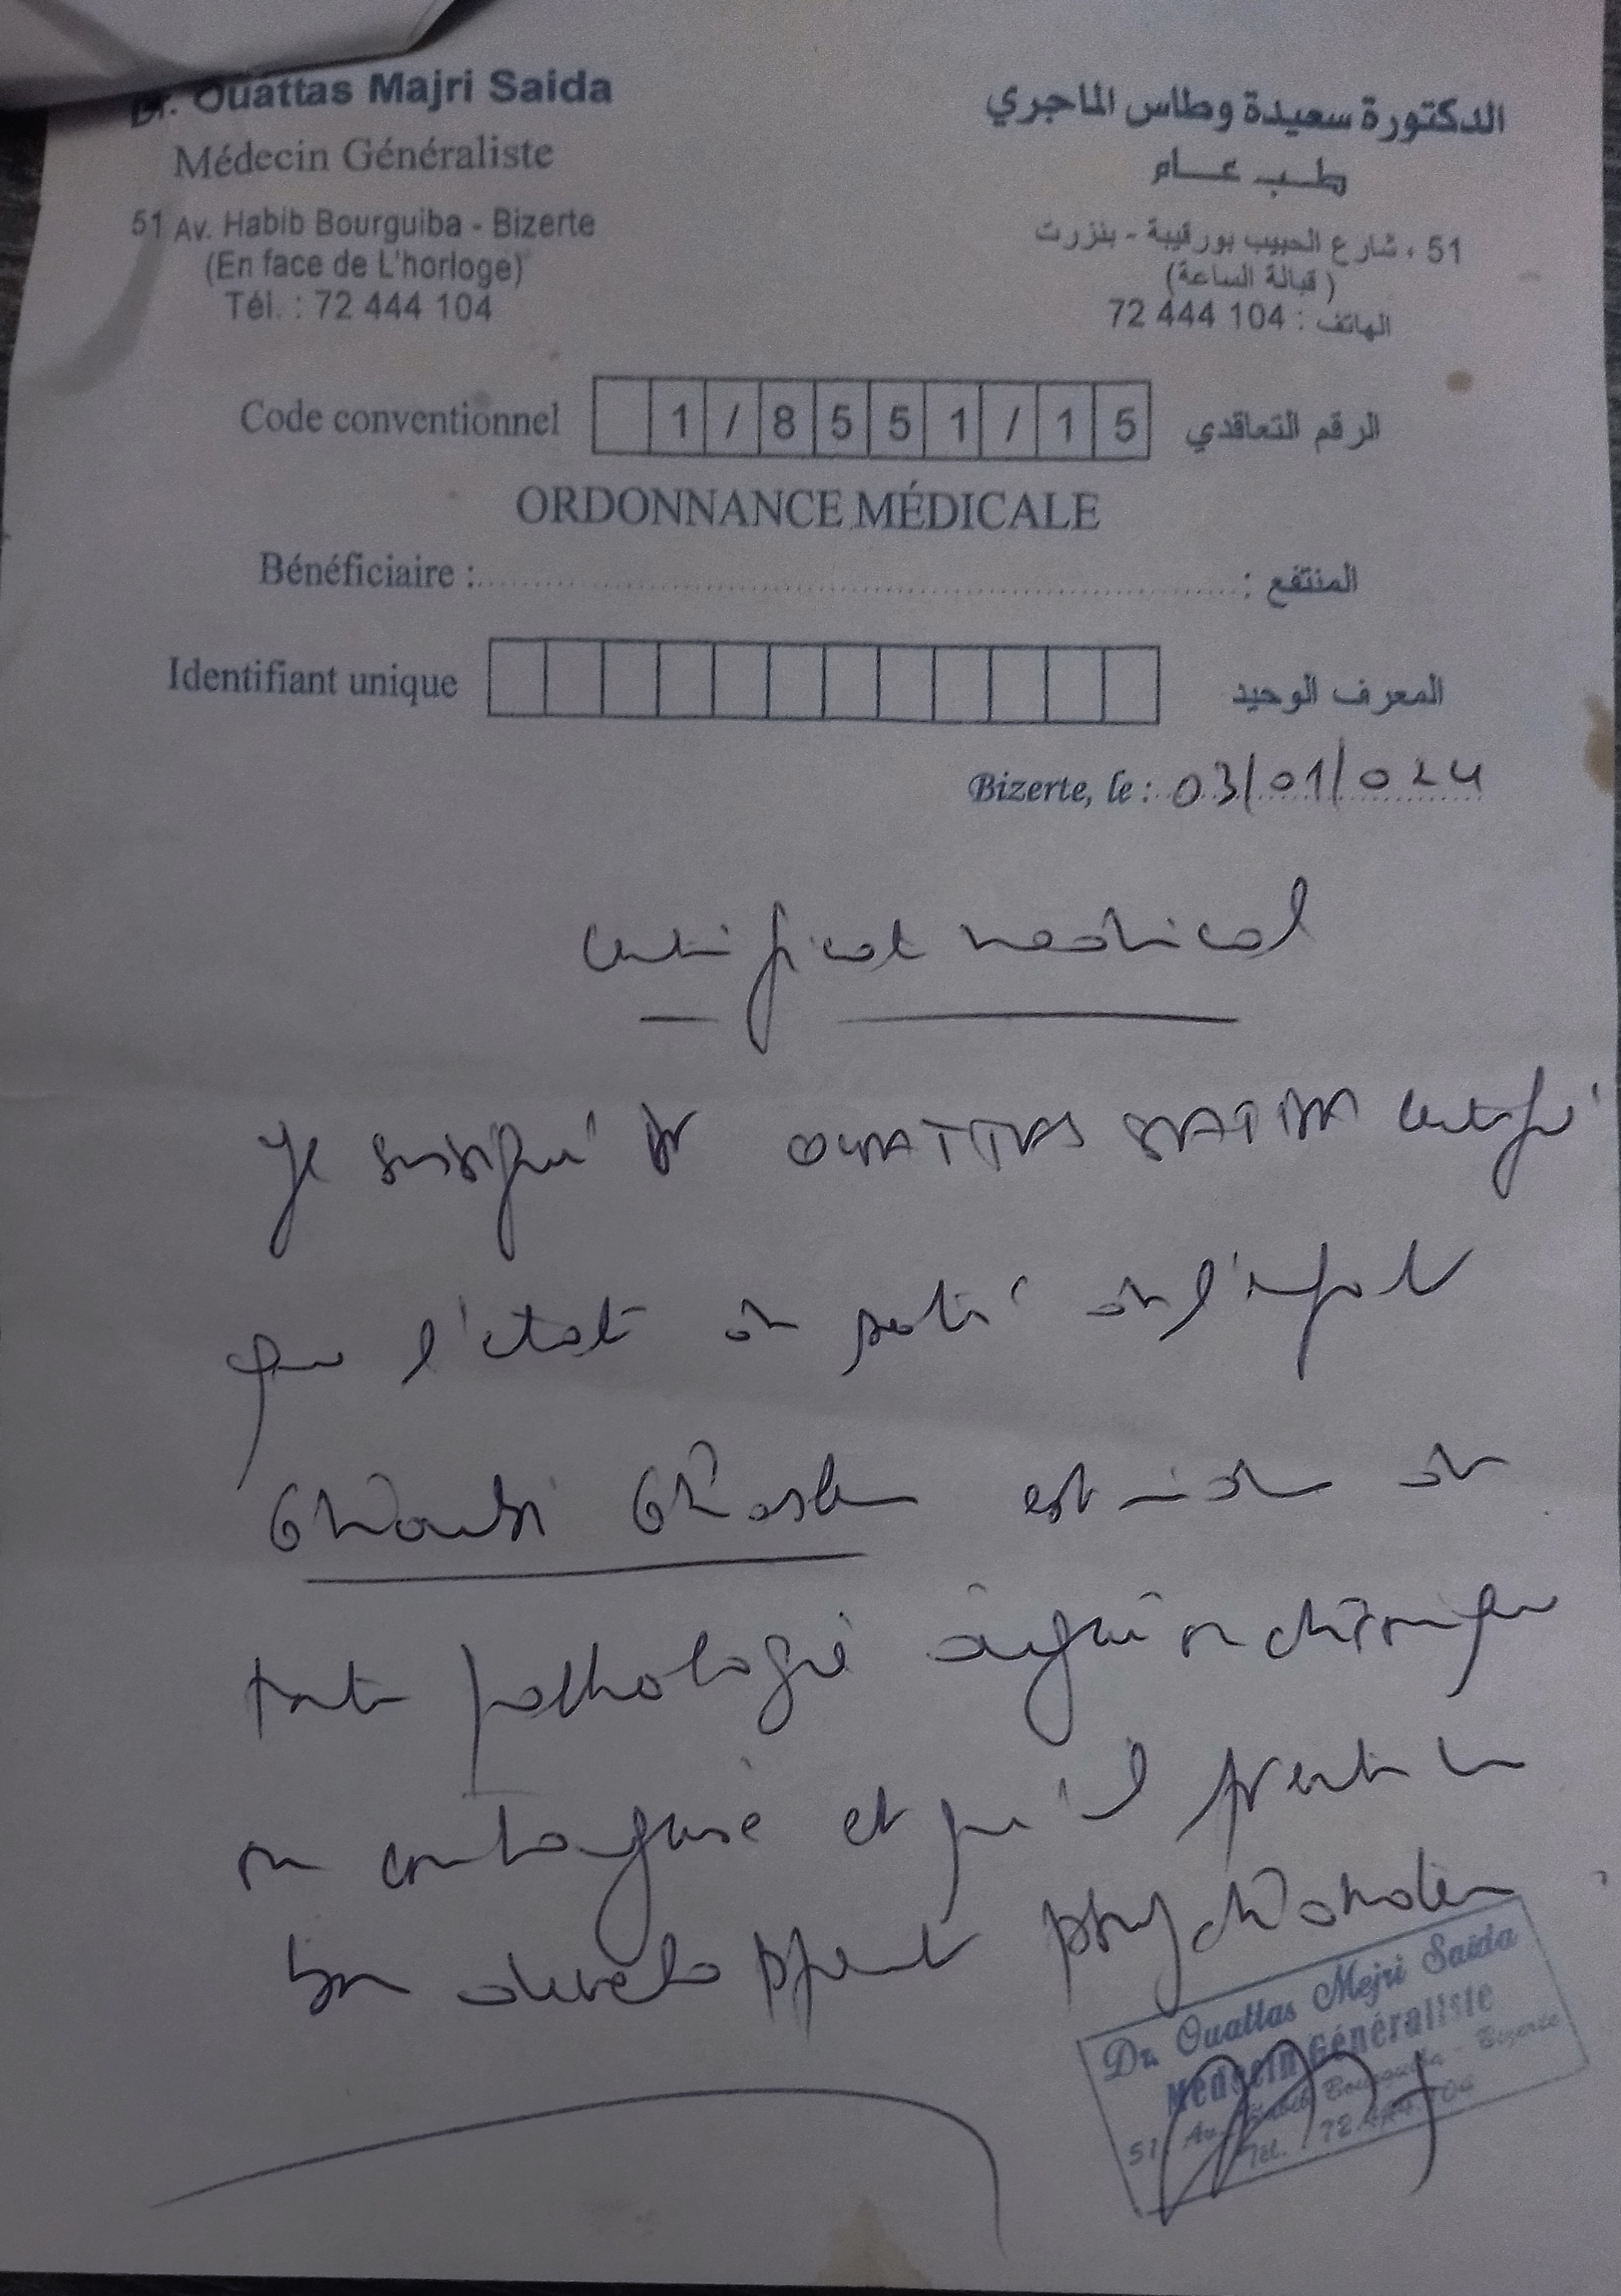 Dr. Ouattas Majri Saida
Médecin Généraliste
51 Av. Habib Bourguiba - Bizerte
(En face de L'horloge)
Tél. : 72 444 104
الدكتورة سعيدة وطاس الماجري
طب عام
51 ، شارع الحبيب بورقيبة - بنزرت
(قبالة الساعة)
الهاتف : 104 444 72
Code conventionnel 1/8551/15 الرقم التعاقدي
ORDONNANCE MÉDICALE
Bénéficiaire : المنتفع :
Identifiant unique المعرف الوحيد
Bizerte, le : 03/01/024
Certificat medical
Je soussigné Dr OUATTAS SAIDA certifie
que l'état de santé de l'enfant
est de
toute pathologie aigue ou chronique
ou contagieuse et qu'il présente un
bon developpement psychomoteur
Dr. Ouattas Mejri Saida
Médecin Généraliste
51, Av. Habib Bourguiba - Bizerte
Tél. : 72.444.104